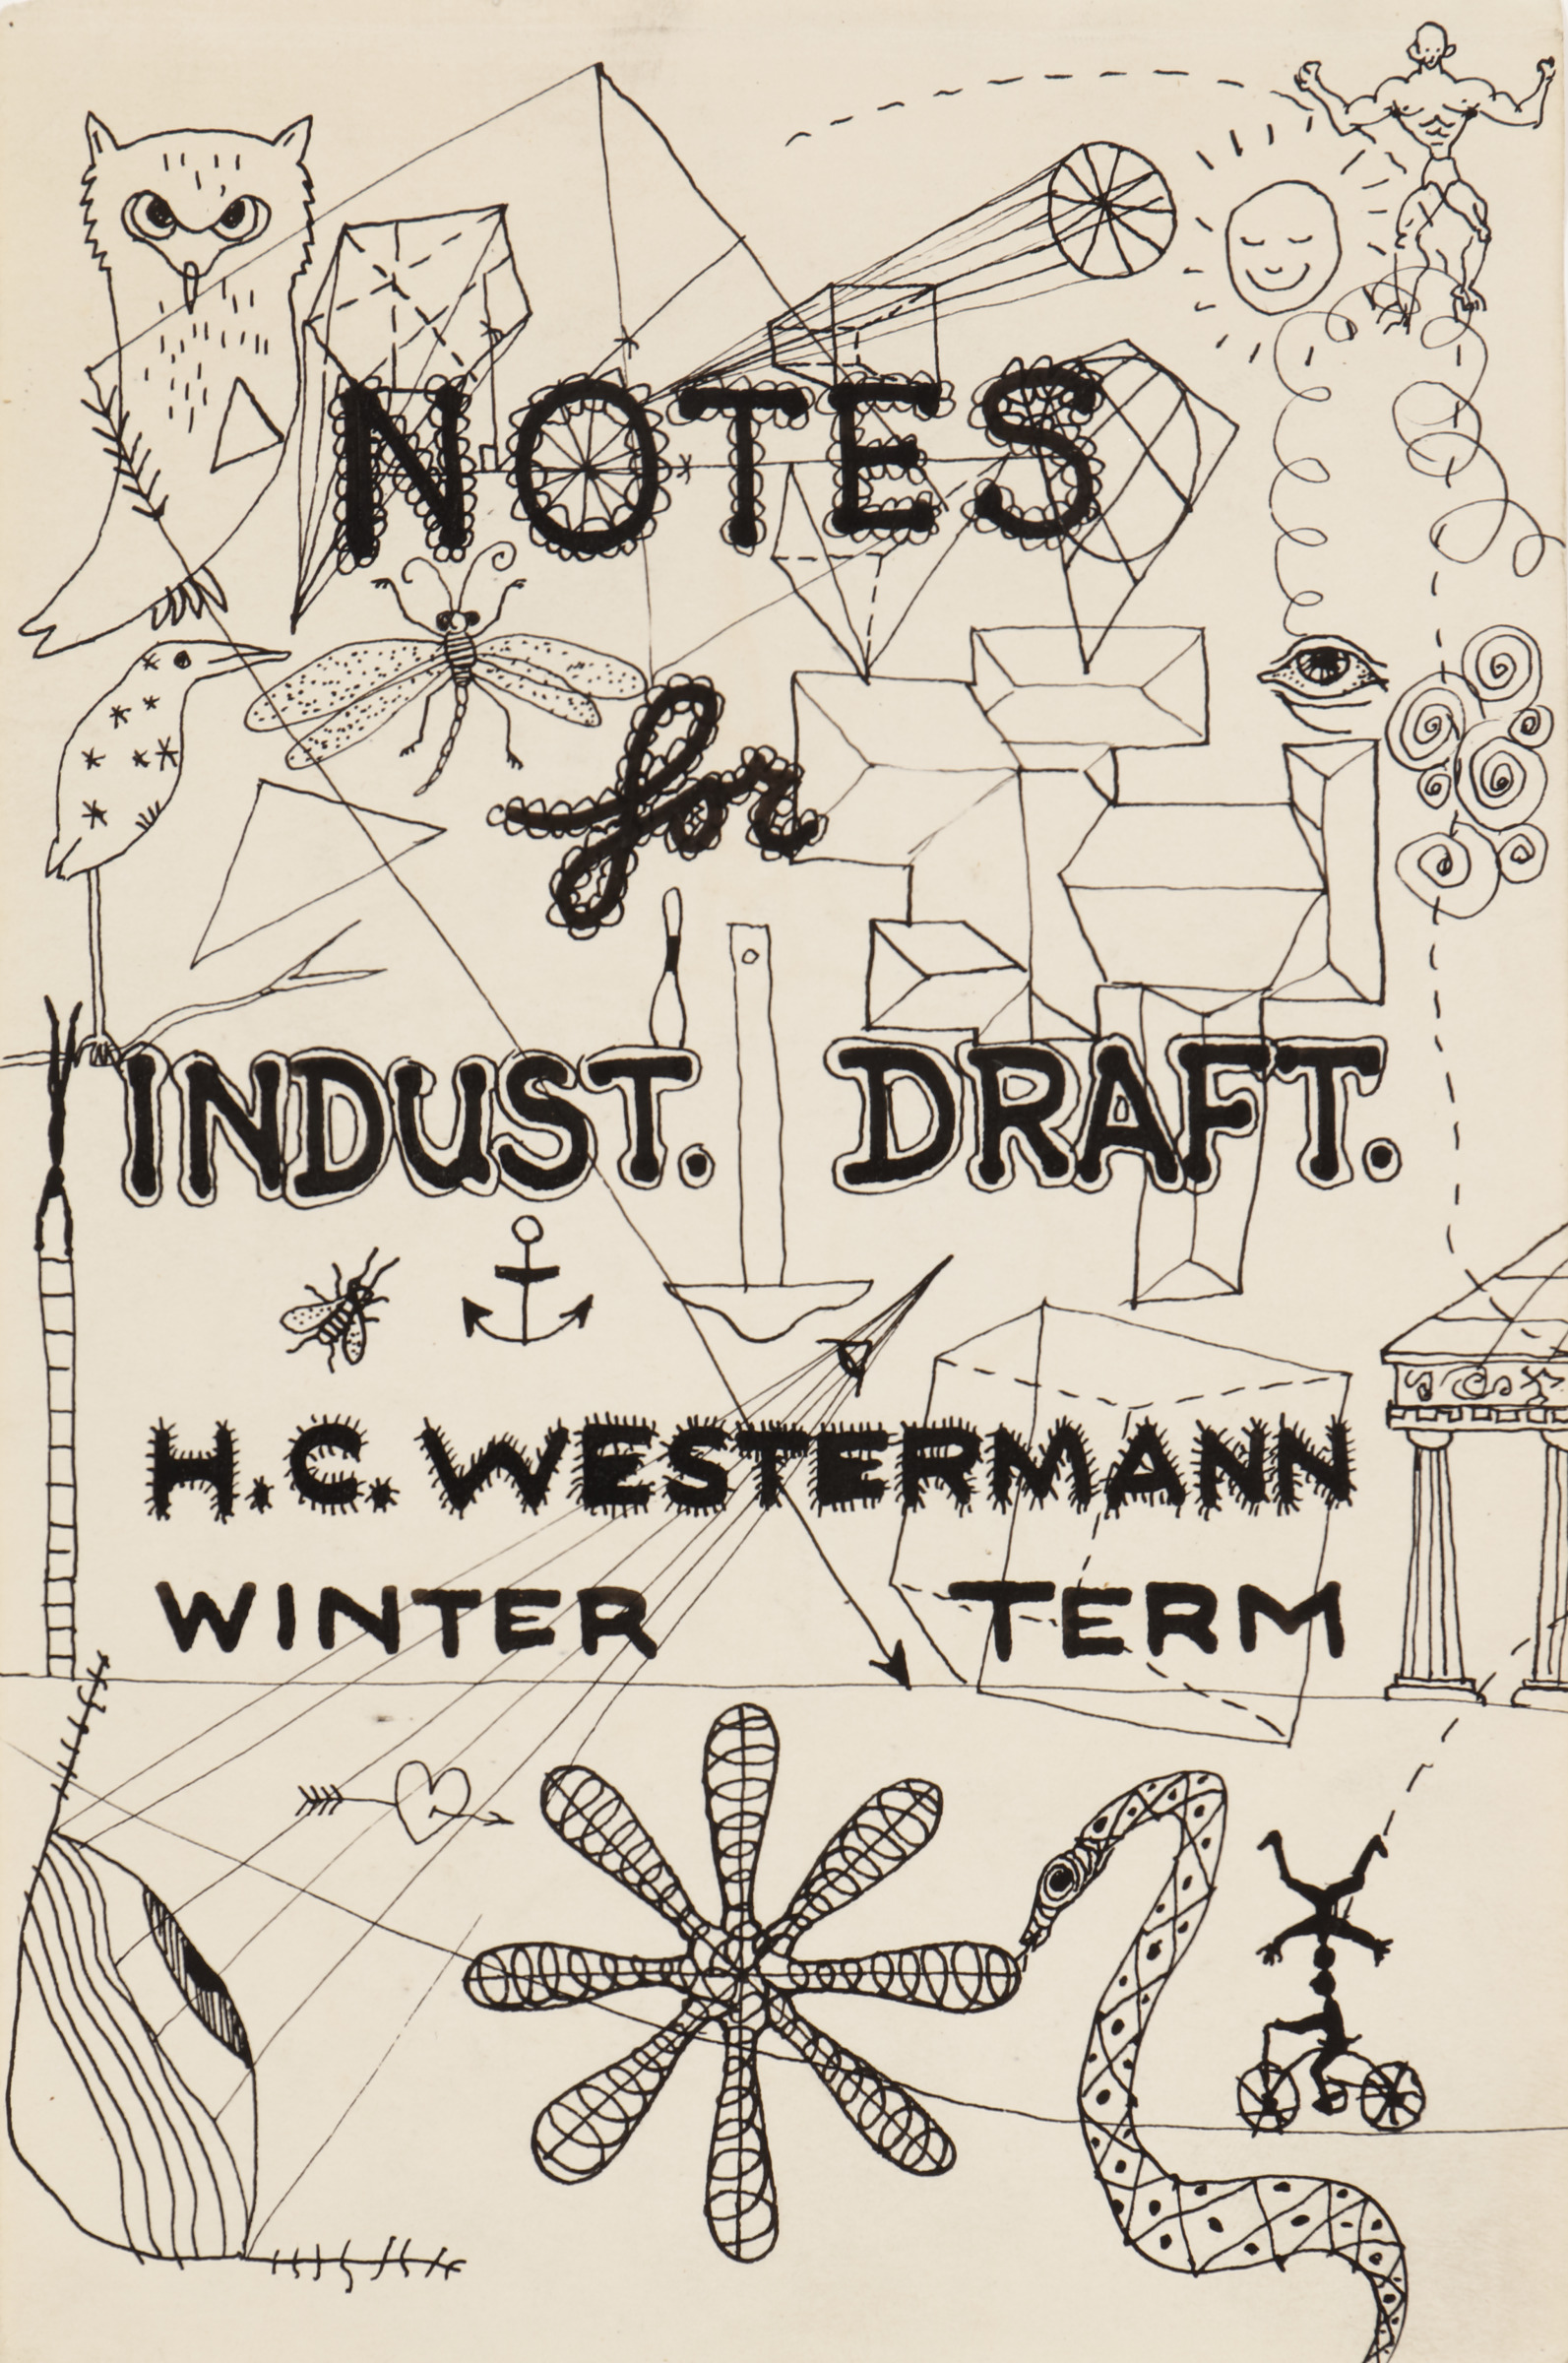 NOTES
for
INDUST. DRAFT.
H.C. WESTERMANN
WINTER TERM